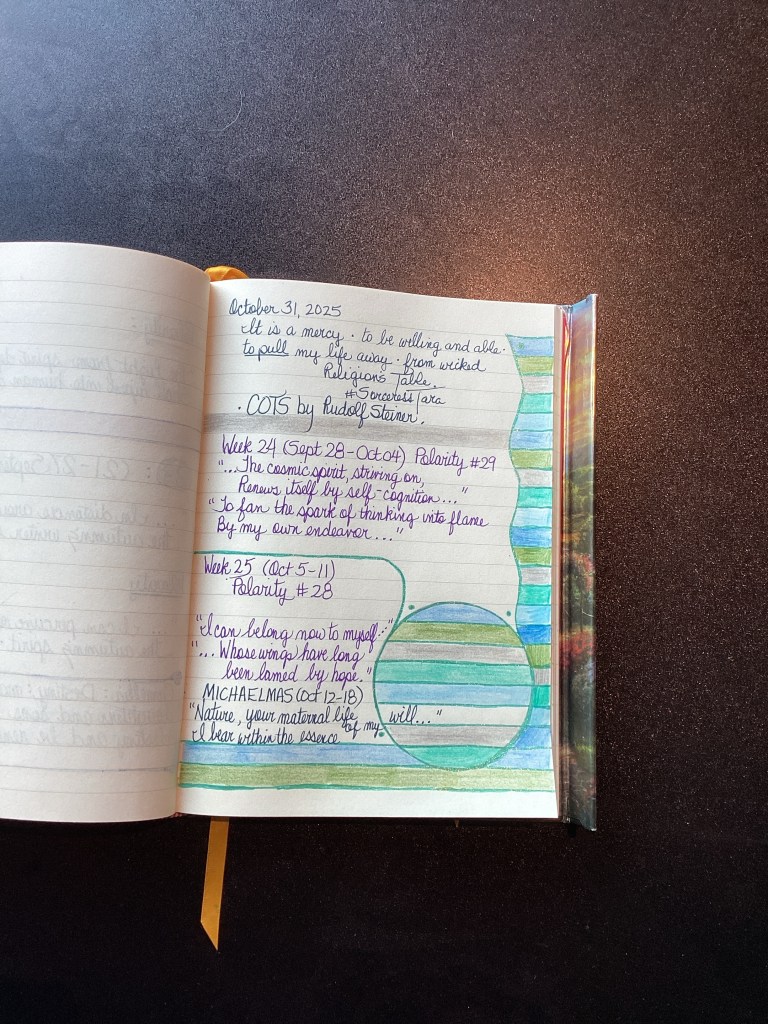 October 31, 2025
It is a mercy · to be willing and able ·
to pull my life away · from wicked
Religions Table.
#SorceressTara
· COTS by Rudolf Steiner.
Week 24 (Sept 28 - Oct 04) Polarity #29
"...The cosmic spirit, striving on,
Renews itself by self-cognition..."
"To fan the spark of thinking into flame
By my own endeavor..."
Week 25 (Oct 5-11)
Polarity #28
"I can belong now to myself..."
"... Whose wings have long
been lamed by hope."
MICHAELMAS (Oct 12-18)
"Nature, your maternal life
I bear within the essence of my will..."